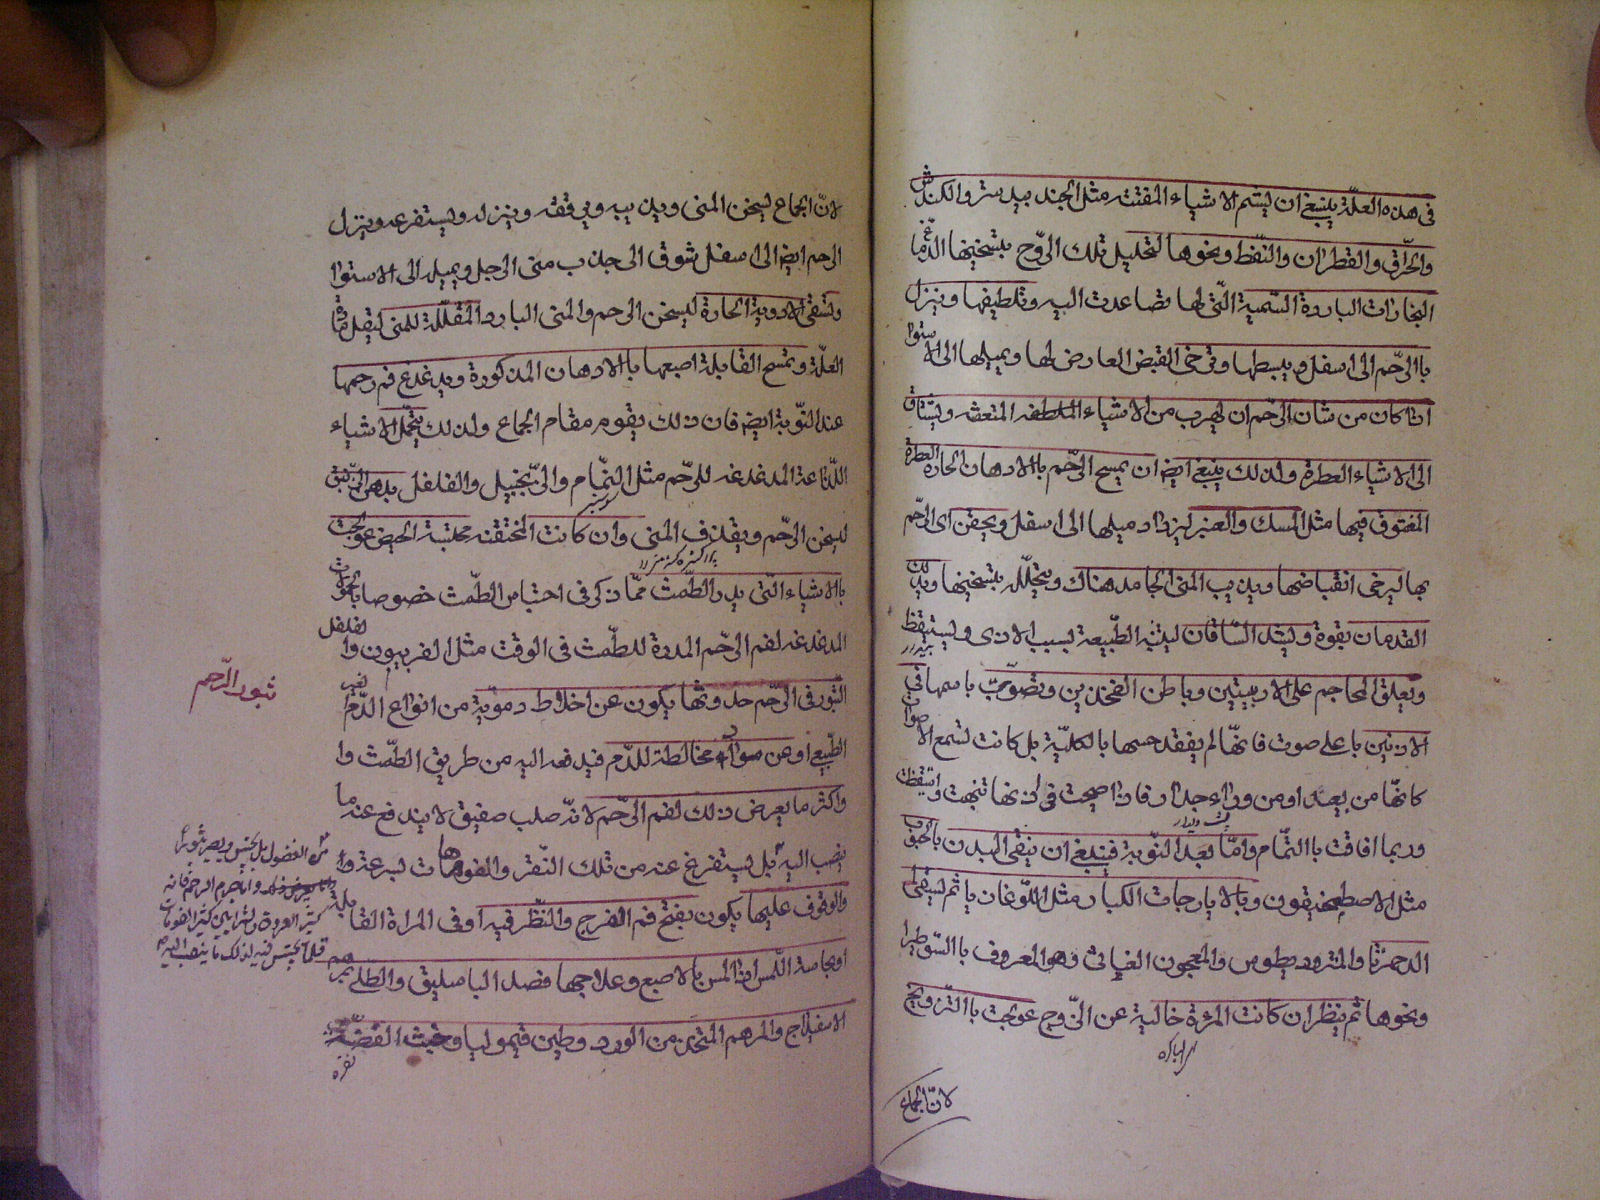 فى هذه العلّة ينبغى ان يشم الاشياء المنتنة مثل الجندبيدستر والكندش
والحرّاق والقطران والنّفط ونحوها لتحليل تلك الرّوح بتسخينها الدّماغ
البخارات الباردة السّمية الّتى لها تصاعدت اليه وتلطيفها وينزل
باالرّحم الى اسفل ويبسطها وترخى القبض العارض لها ويميلها الى الاستوا
اذا كان من شان الرّحم ان يهرب من الاشياء ويشتاق
الى الاشياء العطرة ولذلك ينبغى ايضا ان يمسح الرّحم باالادهان الحارة العطرة
المفتوق فيها مثل المسك والعنبر ليزداد ميلها الى اسفل ويحقن اى الرّحم
بها ليرخى انقباضها ويذيب المنى الجامد هناك ويتحلّل بتسخينها ويدلك
القدمان بقوة وليشد السّاقان ليثبه الطّبيعة بسبب الاذى وليستيقظ
ويعلق المحاجم على الاربيتين وباطن الفخذين ويصوّت باسمها فى
الاذنين باعلى صوت فانّها لم يفقد حسها بالكليّة بل كانت تسمع الاصوات
كانّها من بعيد او من وراء جدار فاذا صيحت فى اذنها تنبهت واستيقظت
وربما افاقت باالتمّام وامّا بعد النّوبة فينبغى ان ينقى البدن بالحبوب
مثل الاصطمخيقون وبالايارجات الكبار مثل اللّوغاذيا ثم ليسقى
الدحمرثا والمثروديطوس والمعجون الغياثى وهو المعروف باالسّوطيرا
ونحوها ثم ينظر ان كانت المرءة خالية عن الزّوج عولجت باالتّزويج
لانّ الجماع
لانّ الجماع ليسخن المنى ويذيبه ويرققه وينزله وليستفرغه وينزل
الرحم ايضا الى اسفل شوق الى جذب منى الرجل ويميله الى الاستوا
وتسقى الادوية الحارة ليسخن الرحم والمنى البارد المقلّلة للمنى ليقل مادّة
العلّة وتمسح القابلة اصبعها باالادهان المذكورة ويدغدغ فم رحمها
عند النّوبة ايضا فان ذلك يقوم مقام الجماع ولذلك يتحمّل الاشياء
اللّذاعة المدغدغة للرّحم مثل النمّام والزّنجبيل والفلفل بدهن الزّنبق
ليسخن الرّحم ويقذف المنى وان كانت المختنقة محتبسة الحيض عولجت
باالاشياء الّتى يدر الطّمث ممّا ذكر فى احتباس الطّمث خصوصا بالحمولات
المدغدغة لفم الرّحم المدرة للطّمث فى الوقت مثل الفربيون والفلفل
بثور الرّحم
البّثور فى الرّحم حدوثها يكون عن اخلاط دمويّة من انواع الدّم الغير
الطّبيعى او عن سوداء مخالطة للدّم فيدفعه اليه من طريق الطّمث وا
واكثر ما يعرض ذلك لفم الرّحم لانّه صلب صفيق لا يندفع عنه ما
ينصب اليه بل يستفرغ عنه من تلك النّقر والفوهات بسرعة وا
والوقوف عليها يكون بفتح فم الفرج والنّظر فيه او فى المراة القابلة
او بحاسة اللّمس اذا المس بالاصبع وعلاجها فصد الباصليق والطّلى بمرهم
الاسفيداج والمرهم المتخذ من الورد وطين قيموليا وخبث الفضّة
من الفضول بل يحتبس ويصير بثورا
واما جرم الرحم فانه
كثير العروق والشرايين كثير الفوهات
قلما يحتبس فيه لذلك ما ينصب اليه
نقره